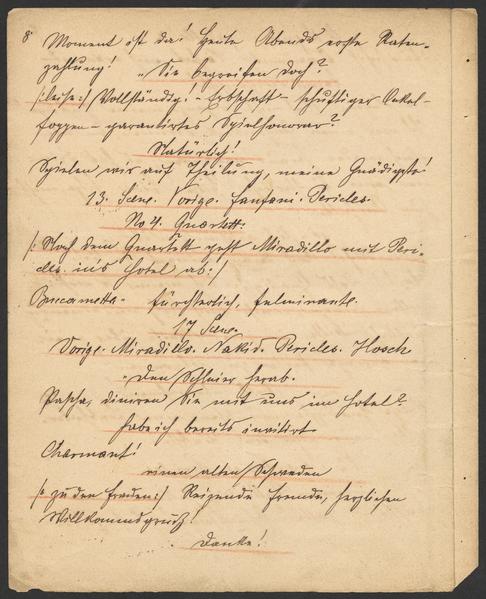 8
Moment ist da! Heute Abends erste Raten-
zahlung!  „Sie begreifen doch?
/:leise:/ Vollständig! – Erbschaft – schuftiger Onkel –
foppen – garantirtes Spielhonorar?
Natürlich!
Spielen wir auf Theilung, meine Gnädigste!
13. Scene. Vorige. Fanfani. Pericles.
No 4. Quartett.
/: Nach dem Quartett geht Miradillo mit Peri-
cles. in's Hotel ab:/
fürchterlich, fulminante.
17 Scene.
Vorige. Miradillo. Nakid. Pericles. Hosch
„Den Schleier herab.
Pascha, diniren Sie mit uns im Hotel?
habe ich bereits invitirt
Charmant!
einen alten Schweden
/: zu den Frauen:/ Reizende Fremde, herzlichen
Willkommsgruß!
Danke!